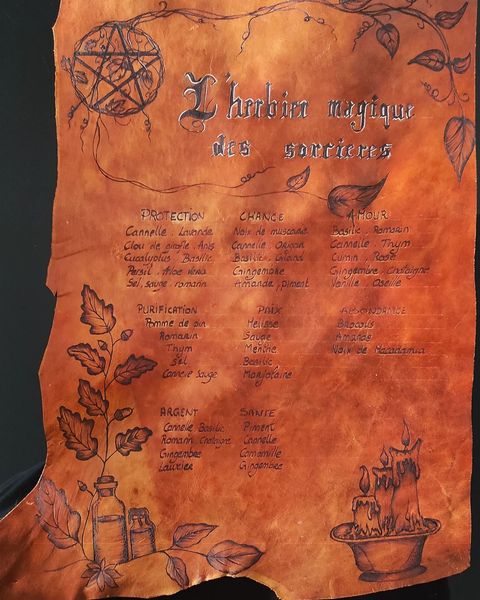 L'herbier magique
des sorcieres
PROTECTION
Cannelle, Lavande
Clou de girofle, Anis
Eucalyptus Basilic
Persil, Aloe vera
Sel, sauge romarin
CHANCE
Noix de muscade
Cannelle, Origan
Basilic,
Gingembre
Amande, piment
AMOUR
Basilic, Romarin
Cannelle, Thym
Cumin, Rose
Gingembre, Chataigne
Vanille, Oseille
PURIFICATION
Pomme de pin
Romarin
Thym
Sel
Sauge
PAIX
Melisse
Sauge
Menthe
Basilic
Marjolaine
ABONDANCE
Brocolis
Amande
Noix de Macadamia
ARGENT
Cannelle Basilic
Romarin Chataigne
Gingembre
Laurier
SANTE
Piment
Cannelle
Camomille
Gingembre